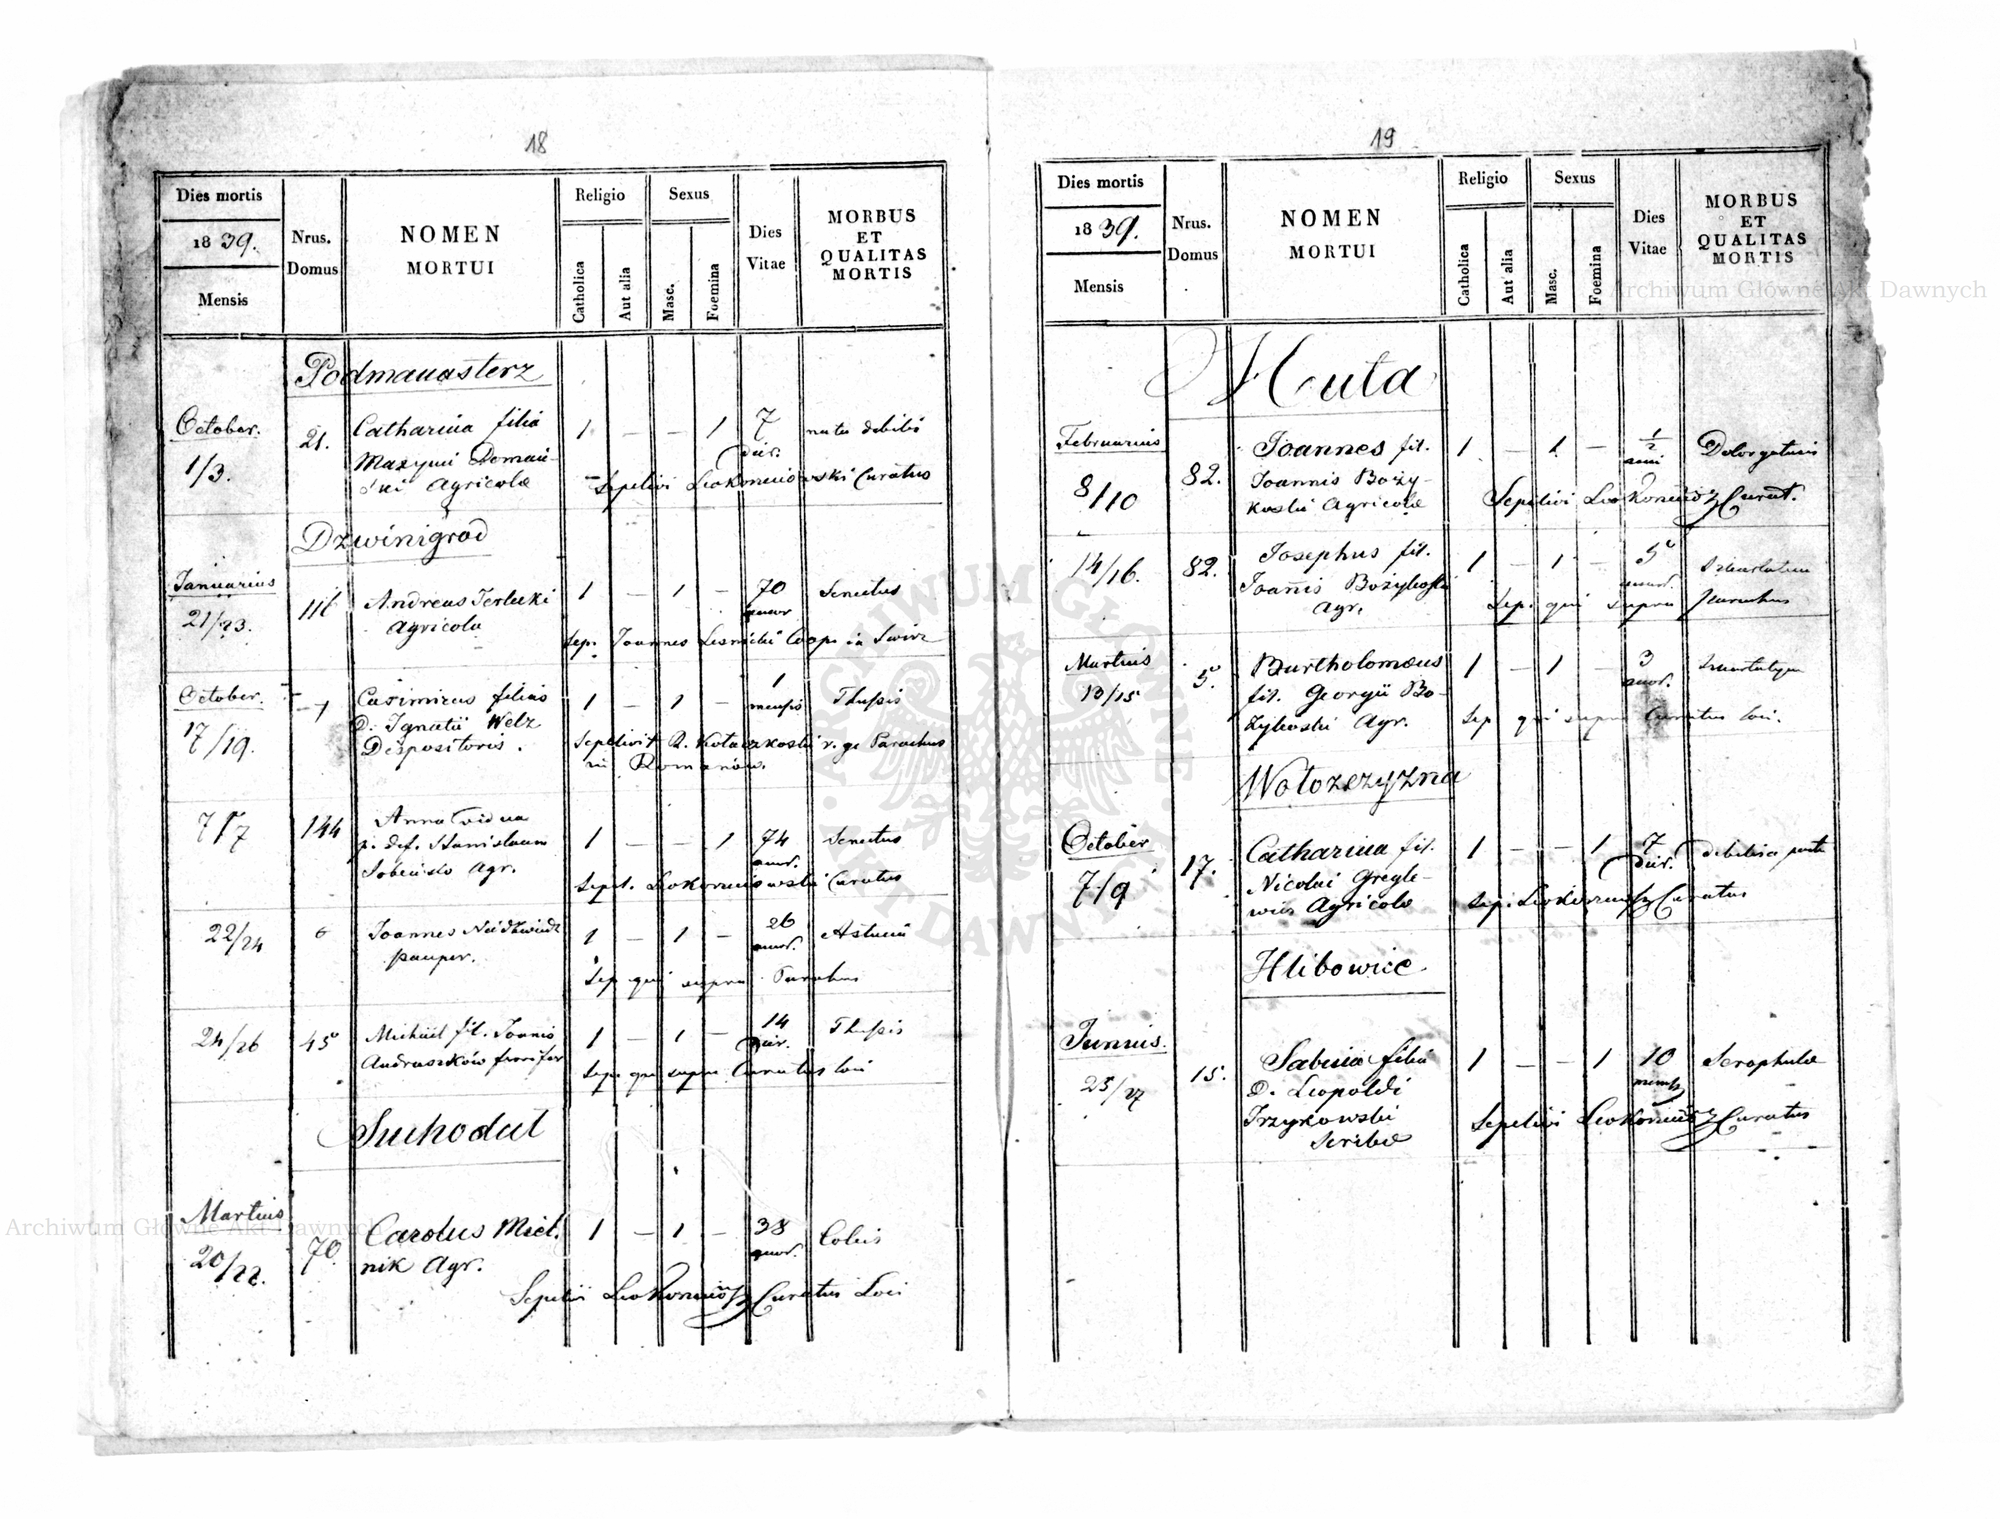 18
Dies mortis
1839.
Mensis
Nrus.
Domus
NOMEN
MORTUI
Religio
Catholica
Aut alia
Sexus
Masc.
Foemina
Dies
Vitae
MORBUS
ET
QUALITAS
MORTIS
Podmanasterz
October.
1/3.
21.
Catharina filia
Agricolae
1 — — 1
7
dier.
natu debilis
Sepelivi Leokonowski Curatus
Dzwinigrod
Januarius
21/23.
116
Andreas Terlecki
Agricola
1 — 1 —
70
annor
Senectus
Sep. Joannes Lesnicki Coop. in Swirz
October.
17/19.
1
Casimirus filius
D. Ignatii Welz
Dispositoris.
1 — 1 —
1
mensis
Thussis
Sepelivit R. Parochus
in Romanów.
7/7
144
Anna vidua
p. def. Stanislaum
Agr.
1 — — 1
74
annor.
Senectus
Sepel. Curatus
22/24
6
Joannes Niedzwiedz
pauper.
1 — 1 —
26
annor.
Sep. qui supra Parochus
24/26
45
Michael fil. Joannis
Andruszków
1 — 1 —
14
dier.
Thussis
Sep. qui supra Curatus loci
Suchodul
Martius
20/22.
70.
Carolus Miel.
nik Agr.
1 — 1 —
38
annor.
Colis
Sepelivi Curatus Loci
19
Dies mortis
1839.
Mensis
Nrus.
Domus
NOMEN
MORTUI
Religio
Catholica
Aut alia
Sexus
Masc.
Foemina
Dies
Vitae
MORBUS
ET
QUALITAS
MORTIS
Huta
Februarius
8/10
82.
Joannes fil.
Joannis Bozy-
koski Agricolae
1 — 1 —
1/2
anni
Sepelivi Curat.
14/16.
82.
Josephus fil.
Joannis Bozykoski
Agr.
1 — 1 —
5
annor.
Sep. qui supra Parochus
Martius
13/15
5.
Bartholomaeus
fil. Georgii Bo-
zykoski Agr.
1 — 1 —
3
annor.
Sep. qui supra Curatus loci.
Wołoszczyzna
October
7/9
17.
Catharina fil.
Nicolai Gregle-
wicz Agricolae
1 — — 1
7
dier.
Sep. Curatus
Hlibowice
Junius.
25/27
15.
Sabina filia
D. Leopoldi
Trzykowski
Scribae
1 — — 1
10
mens
Scrophulae
Sepelivi Curatus
Archiwum Główne Akt Dawnych
Archiwum Główne Akt Dawnych
ARCHIWUM GŁÓWNE AKT DAWNYCH